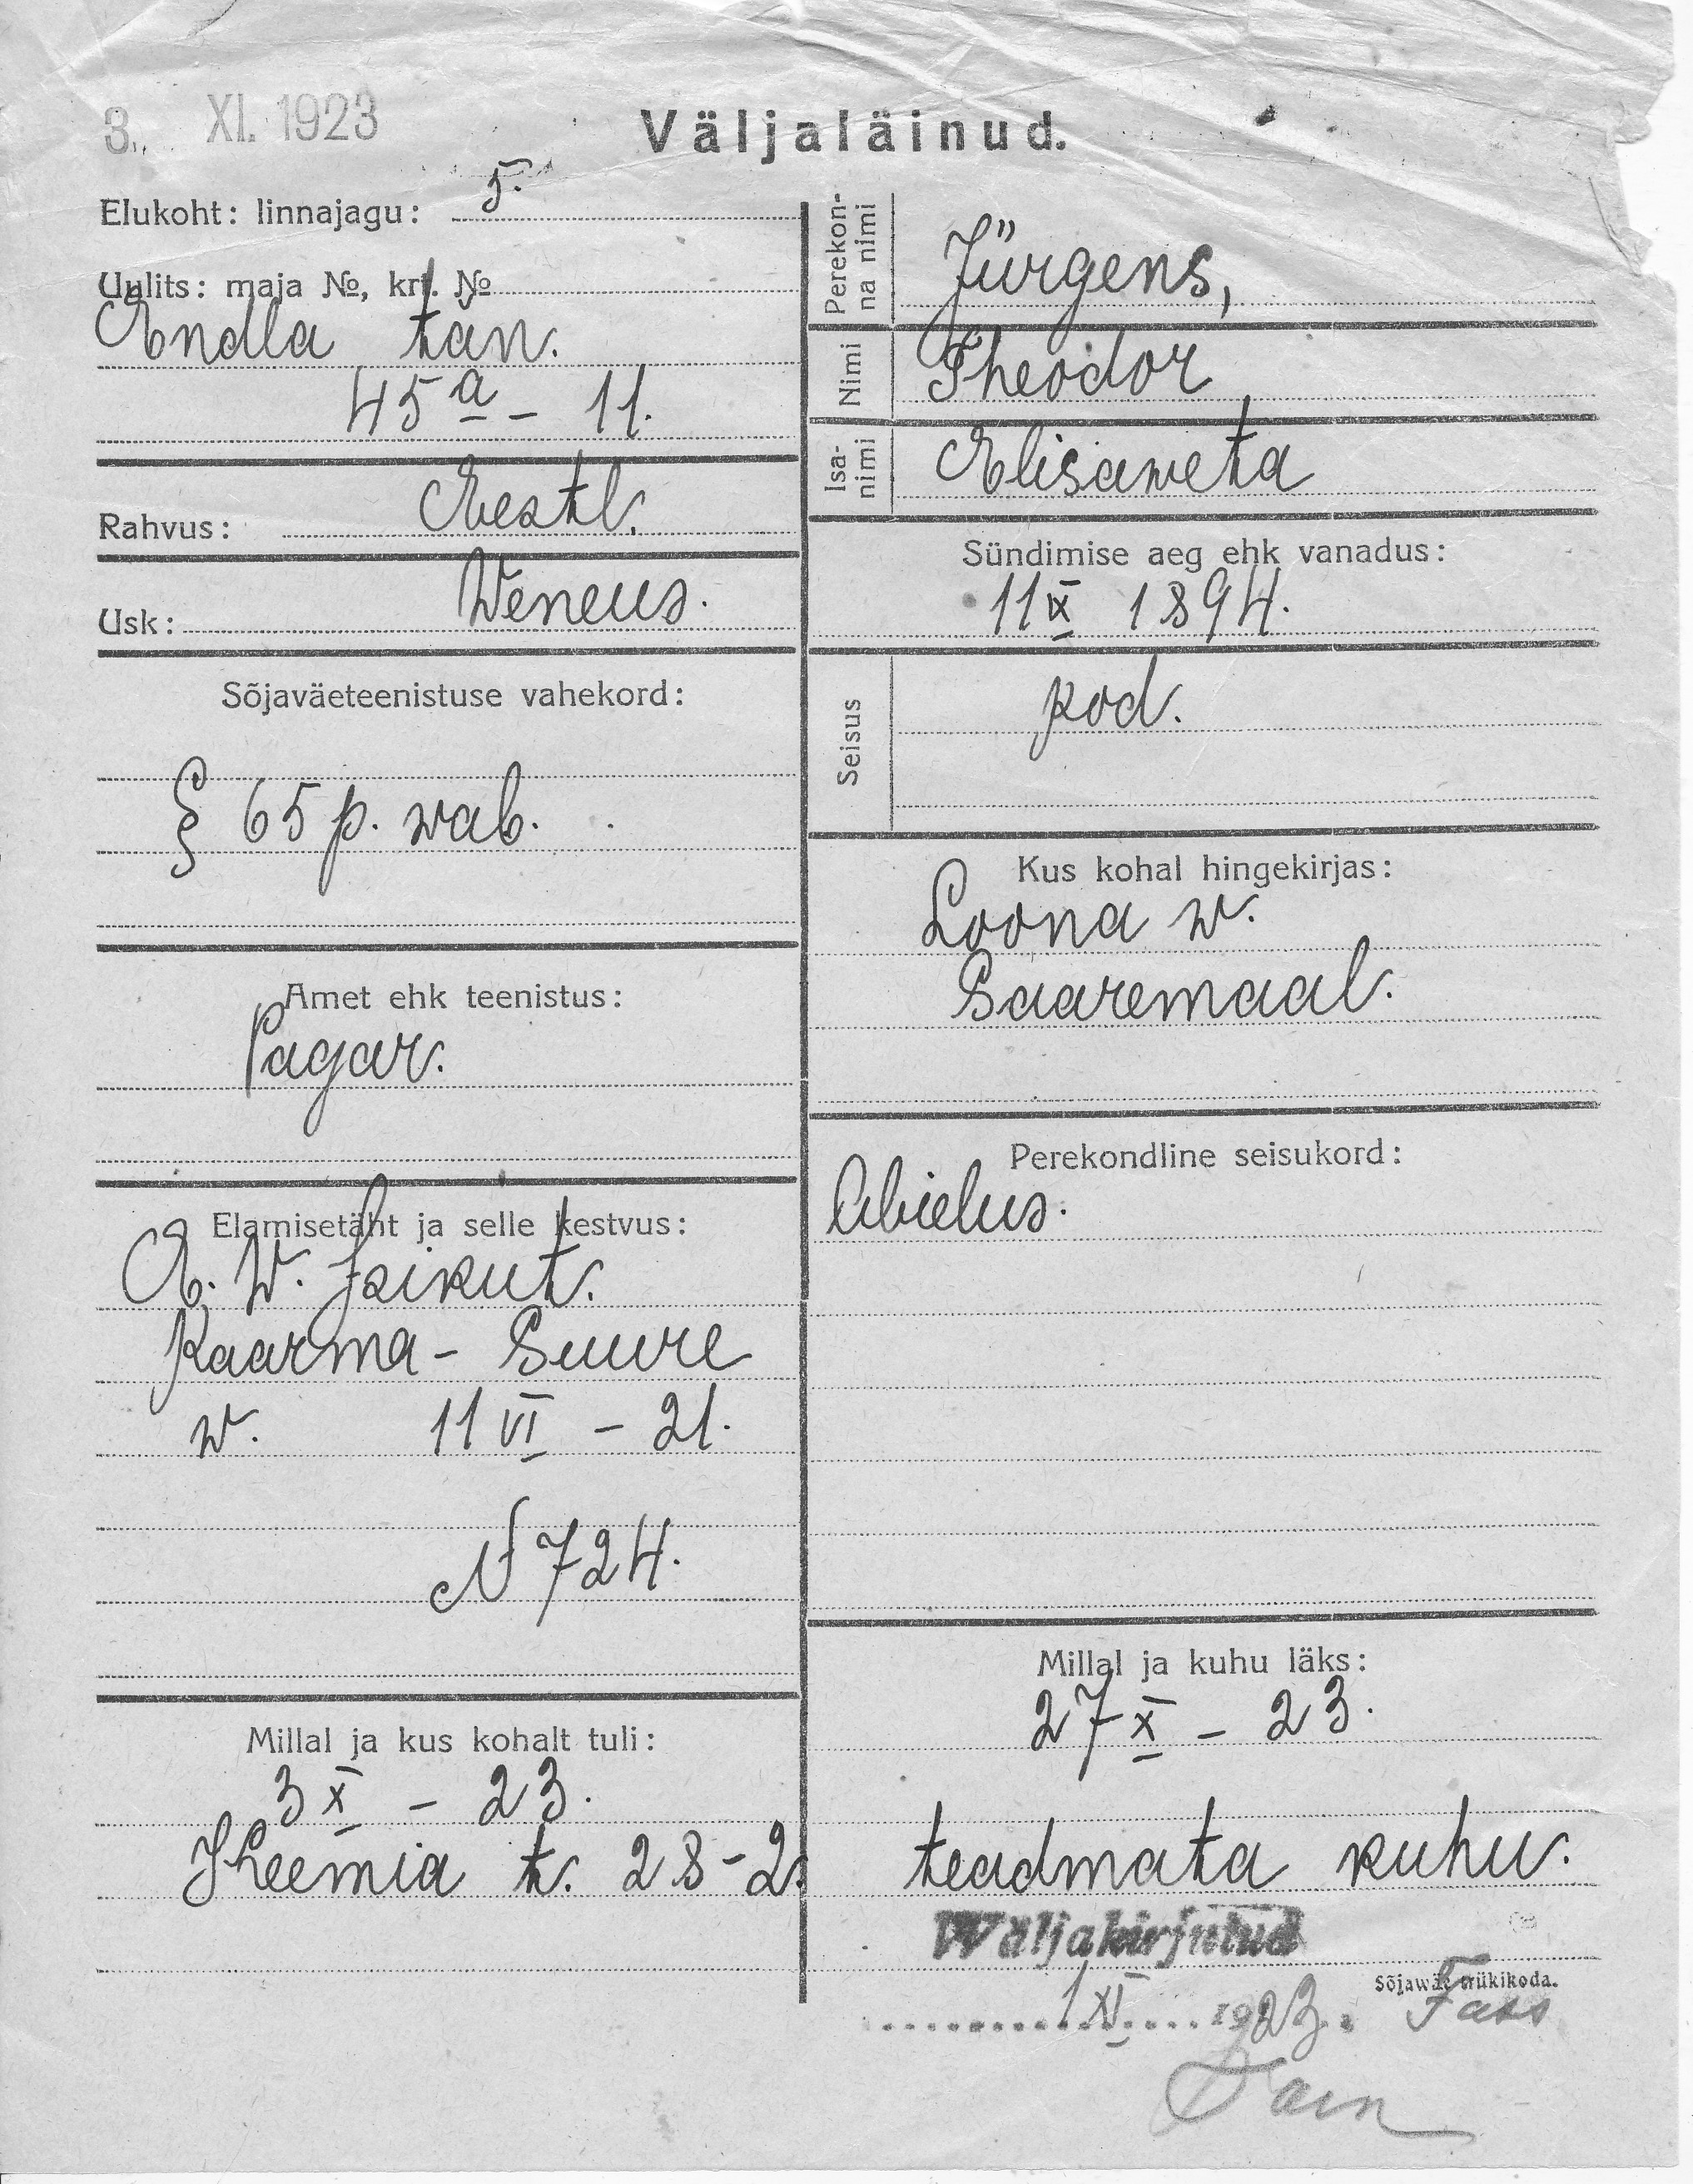 3. XI. 1923
Väljaläinud.
Elukoht: linnajagu: 5.
Uulits: maja №, krt. №
Endla tän.
45 a - 11.
Rahvus: Eestl.
Usk: Weneus.
Sõjaväeteenistuse vahekord:
§ 65 p. wab.
Amet ehk teenistus:
Pagar.
Elamisetäht ja selle kestvus:
E. W. Isikut.
Kaarma - Suure
w. 11 VI - 21.
N 724.
Millal ja kus kohalt tuli:
3 X - 23.
Kheemia t. 28-2.
Perekonna nimi
Jürgens,
Nimi
Theodor
Isanimi
Elisaweta
Sündimise aeg ehk vanadus:
11 IX 1894.
Seisus
kod.
Kus kohal hingekirjas:
Loona w.
Saaremaal.
Perekondline seisukord:
Abielus.
Millal ja kuhu läks:
27 X - 23.
teadmata kuhu.
Wäljakirjutud
Sõjawäe trükikoda.
1 XI 1923.